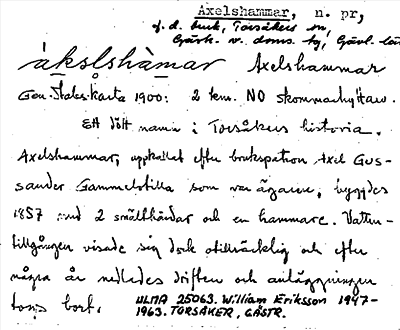 Axelshammar, n. pr,
f. d. bruk, Torsåkers sn,
Gästr. v. doms. hg, Gävl. län
åkslshàmar Axelshammar
Gen. Stabs. karta 1900: 2 km. NO skommarhyttan.
Ett dött namn i Torsåkers historia.
Axelshammar, uppkallat efter brukspatron Axel Gus-
sander Gammelstilla som var ägaren, byggdes
1857 med 2 smälthärdar och en hammare. Vatten-
tillgången visade sig dock otillräcklig och efter
några år nedlades driften och anläggningen
togs bort. ULMA 25063. William Eriksson 1947-
1963. TORSÅKER, GÄSTR.